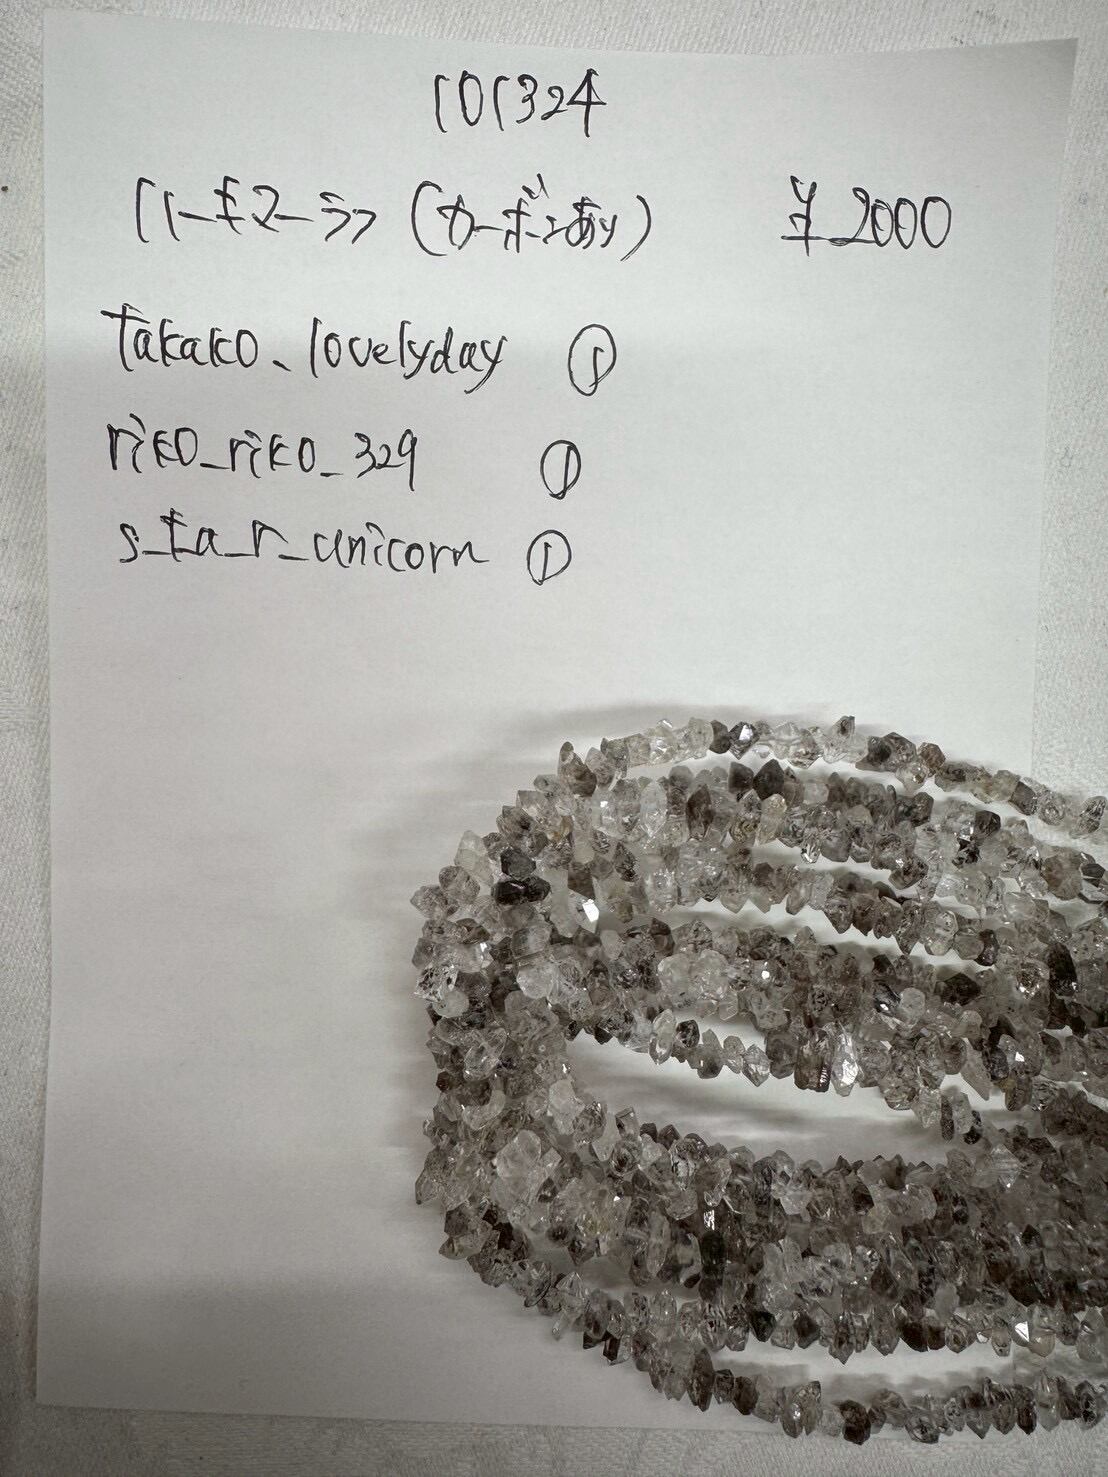 101324
ハーキマーラフ(カーボンあり) ¥2000
takako.lovelyday ①
riko_riko_329 ①
s_ta_r_unicorn ①